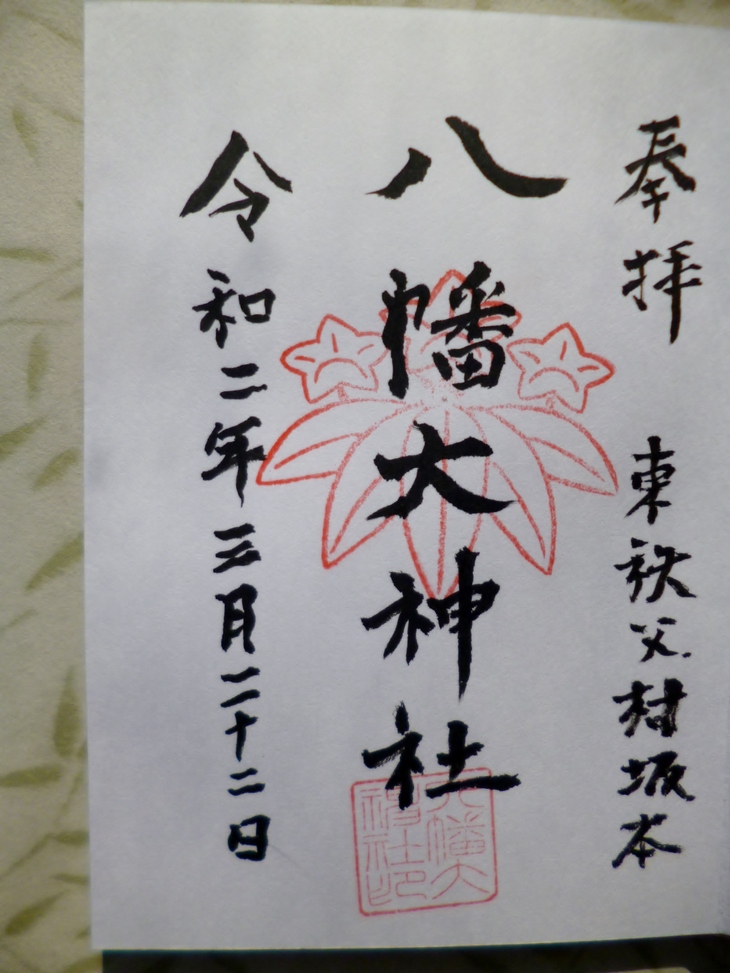 奉拝　東秩父村坂本
八幡大神社
令和二年三月二十二日
八幡大
神社印